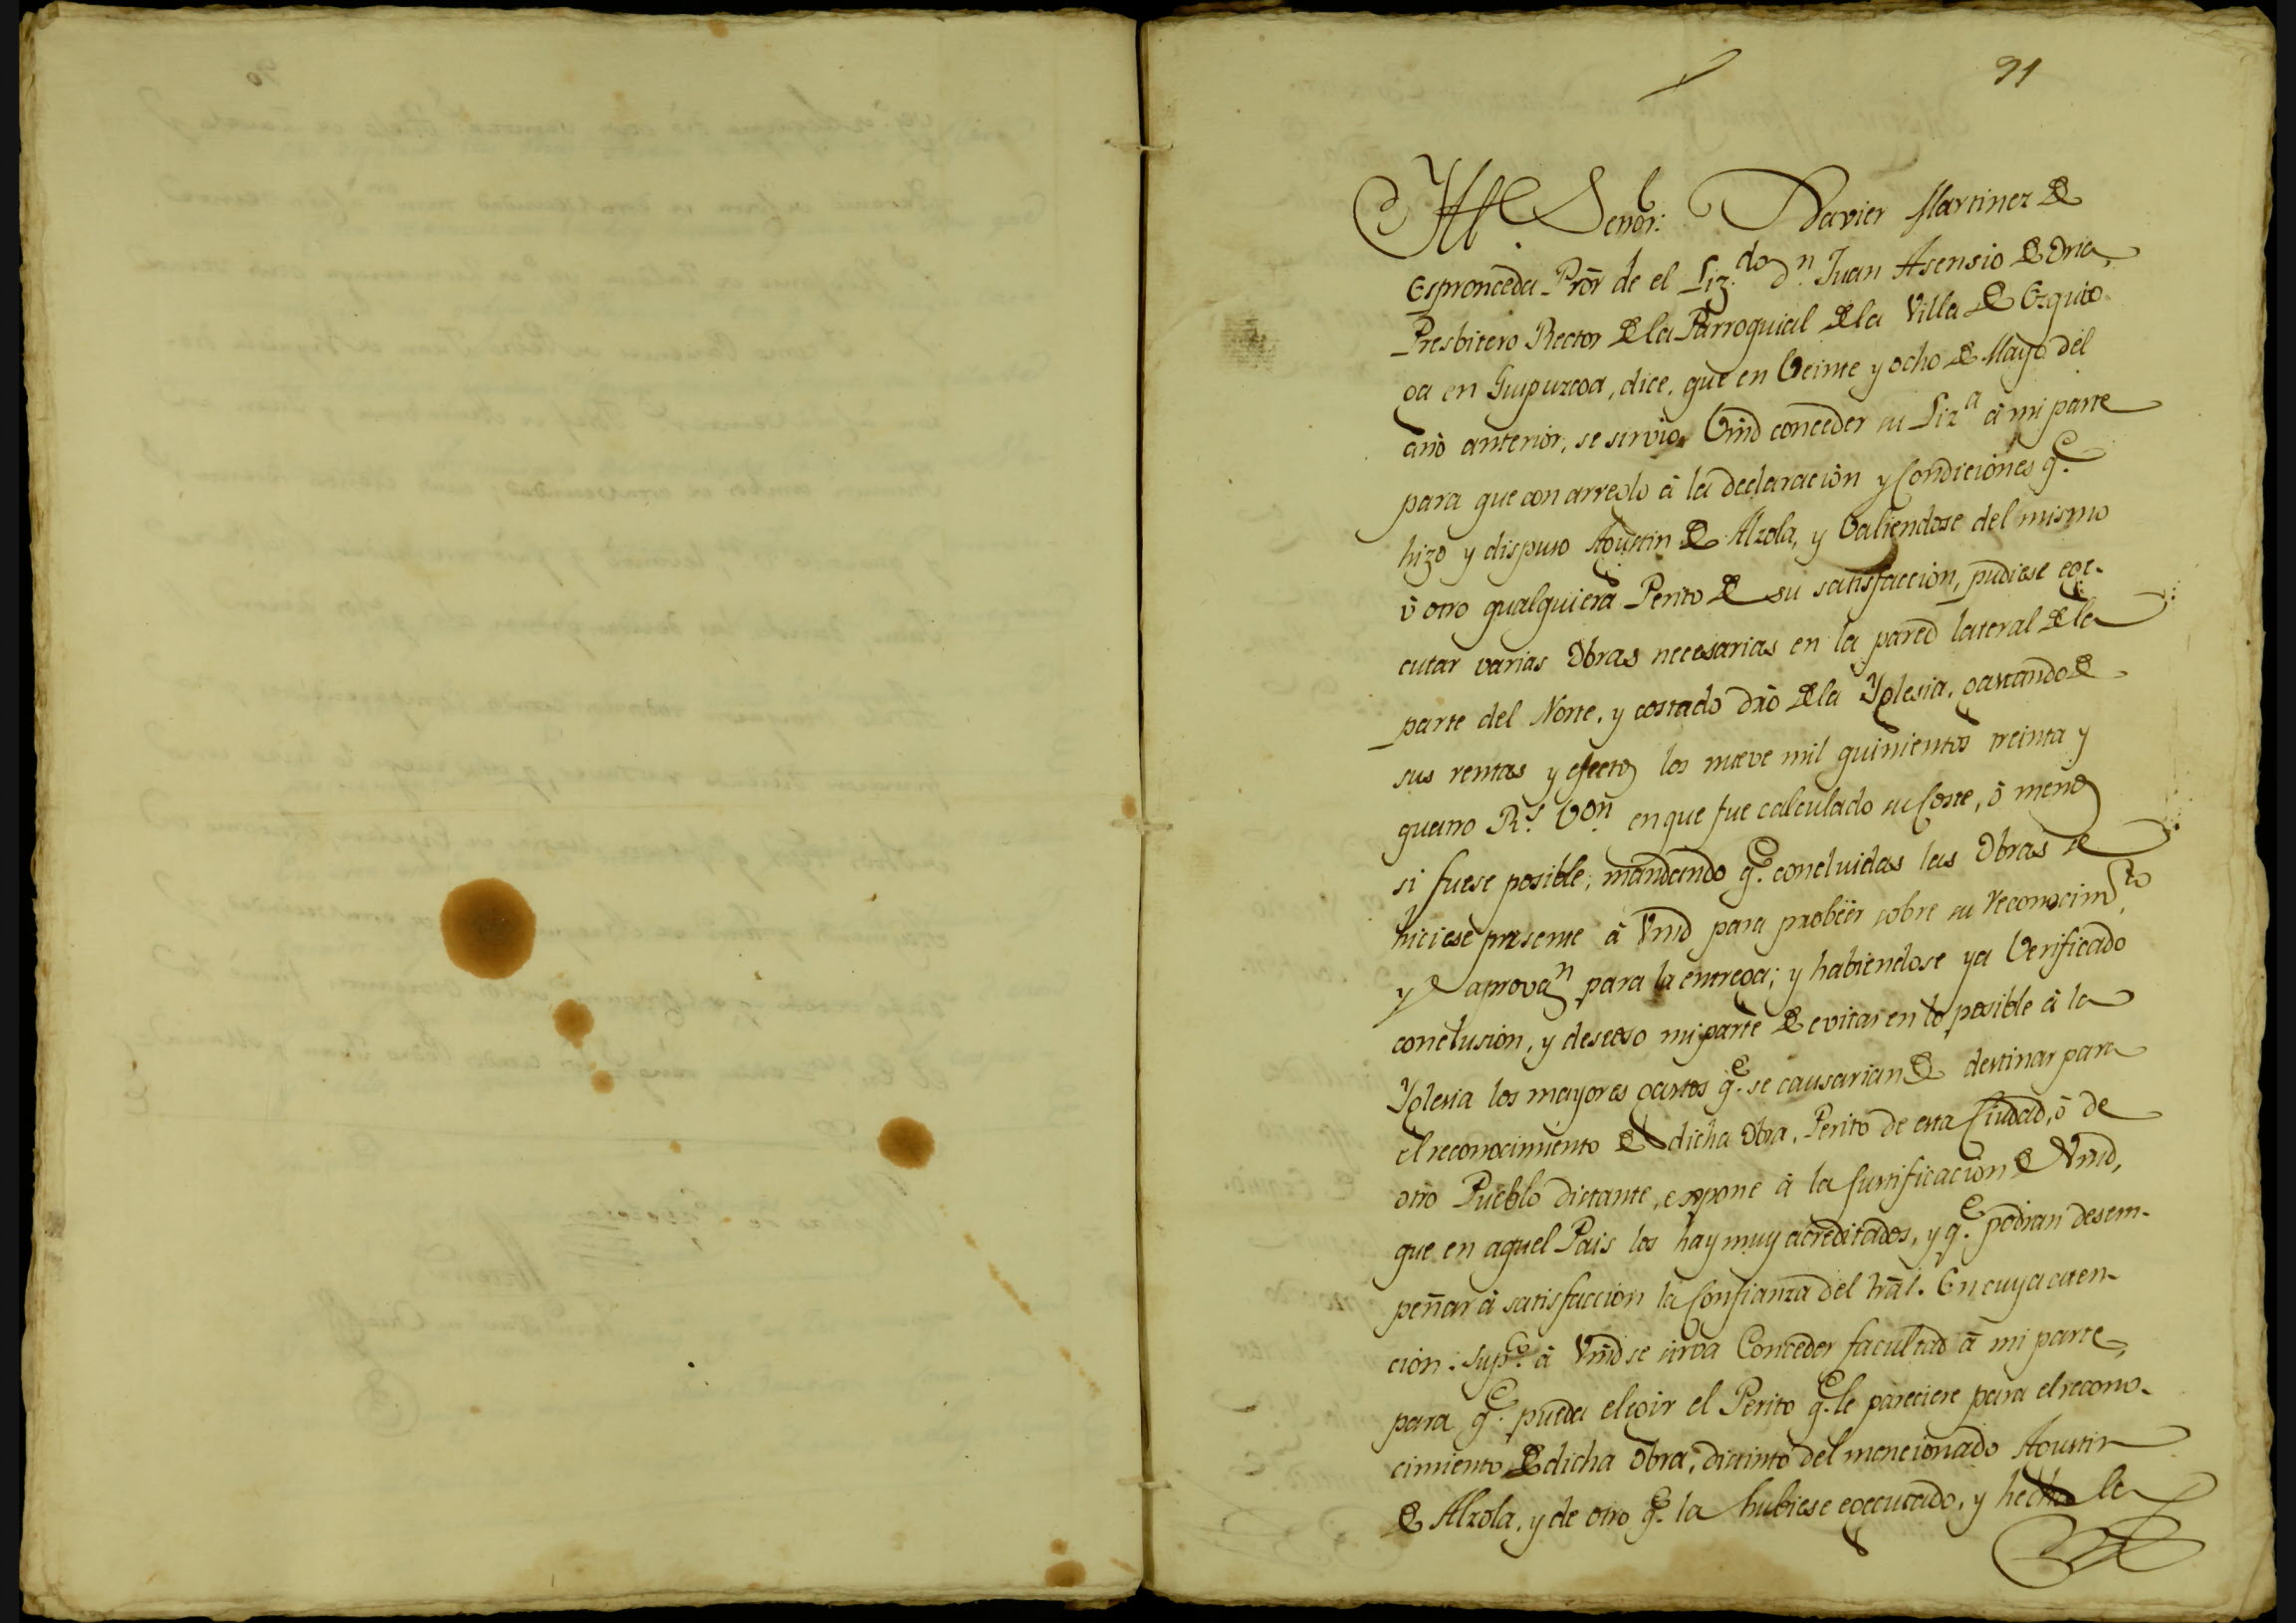 91
Ill.e Señor: Xavier Martinez de
Espronceda Prõr de el Liz.do Dn. Juan Asensio de Oria,
Presbitero Rector de la Parroquial de la Villa de Ezquio
ga en Guipuzcoa, dice, que en Veinte y ocho de Mayo del
año anterior, se sirvio Vmd conceder su Liz.a à mi parte
para que con arreglo à la declaracion y Condiciones q.e
hizo y dispuso Agustin de Alzola, y Valiendose del mismo
ù otro qualquiera Perito de su satisfaccion, pudiese ege-
cutar varias Obras necesarias en la pared lateral de la
parte del Norte, y costado dr̃o de la Yglesia, gastando de
sus rentas y efectos los nueve mil quinientos treinta y
quatro R.s Von. en que fue calculado su Coste, ò menos
si fuese posible; mandando q.e concluidas las Obras se
hiciese presente à Vmd para probèer sobre su reconocim.to
y aprovan. para la entrega; y habiendose ya Verificado
conclusion, y deseoso mi parte de evitar en lo posible à la
Yglesia los mayores gastos q.e se causarian de destinar para
el reconocimiento de dicha Obra, Perito de esta Ciudad, ò de
otro Pueblo distante, expone à la Justificacion de Vmd,
que en aquel Pais los hay muy acreditados, y q.e podran desem-
peñar à satisfaccion la Confianza del tr̃al. En cuya aten-
cion: Sup.co à Vmd se sirva Conceder facultad à mi parte,
para q.e pueda elegir el Perito q.e le pareciere para el recono-
cimiento de dicha Obra, distinto del mencionado Agustin
de Alzola, y de otro q.e la hubiese egecutado, y hecha la